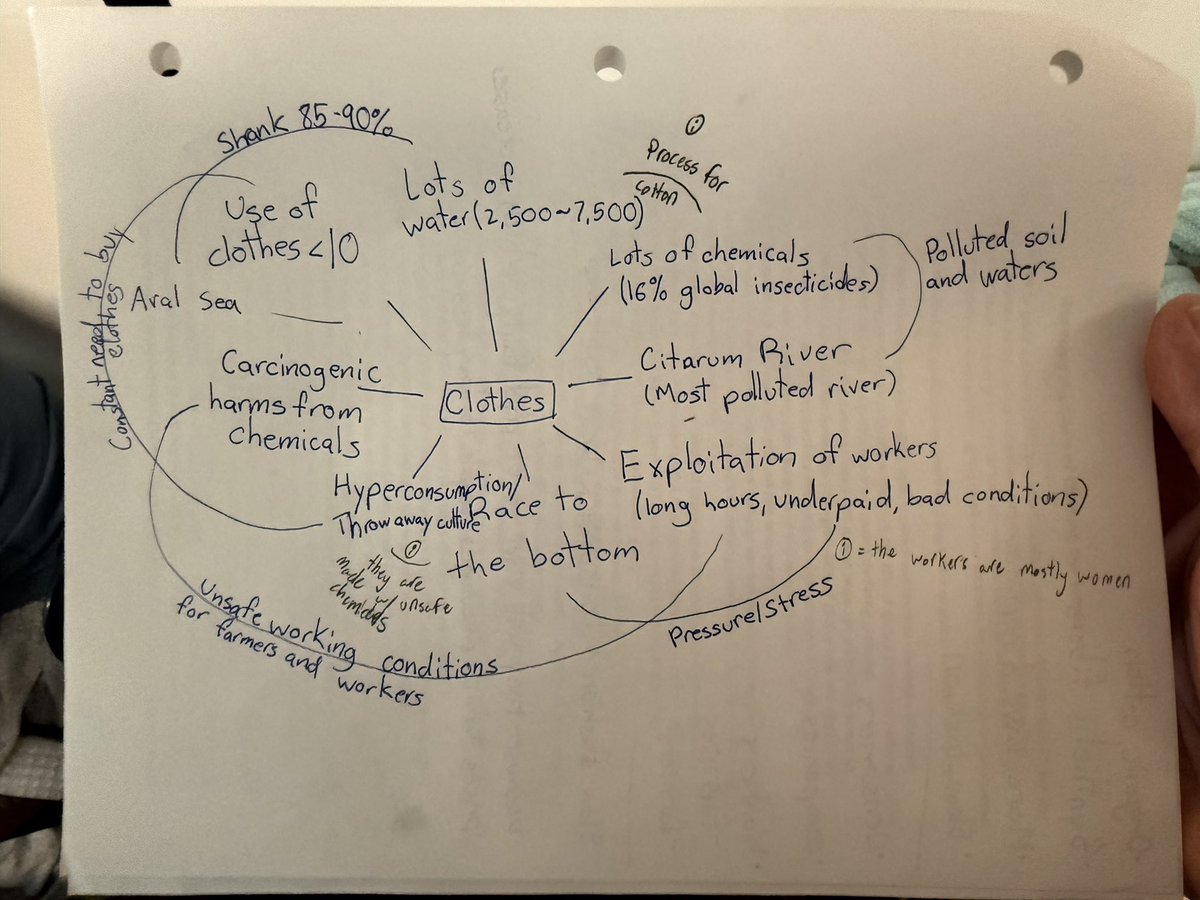 Shank 85-90%
Lots of
water(2,500~7,500)
①
Process for
cotton
Use of
clothes <10
Lots of chemicals
(16% global insecticides)
Polluted soil
and waters
Constant need to buy
clothes
Aral Sea
Citarum River
(Most polluted river)
Carcinogenic
harms from
chemicals
Clothes
Exploitation of workers
(long hours, underpaid, bad conditions)
Hyperconsumption/
Throw away culture
Race to
the bottom
①
they are
made w/ unsafe
chemicals
① = the workers are mostly women
Pressure/Stress
Unsafe working conditions
for farmers and workers